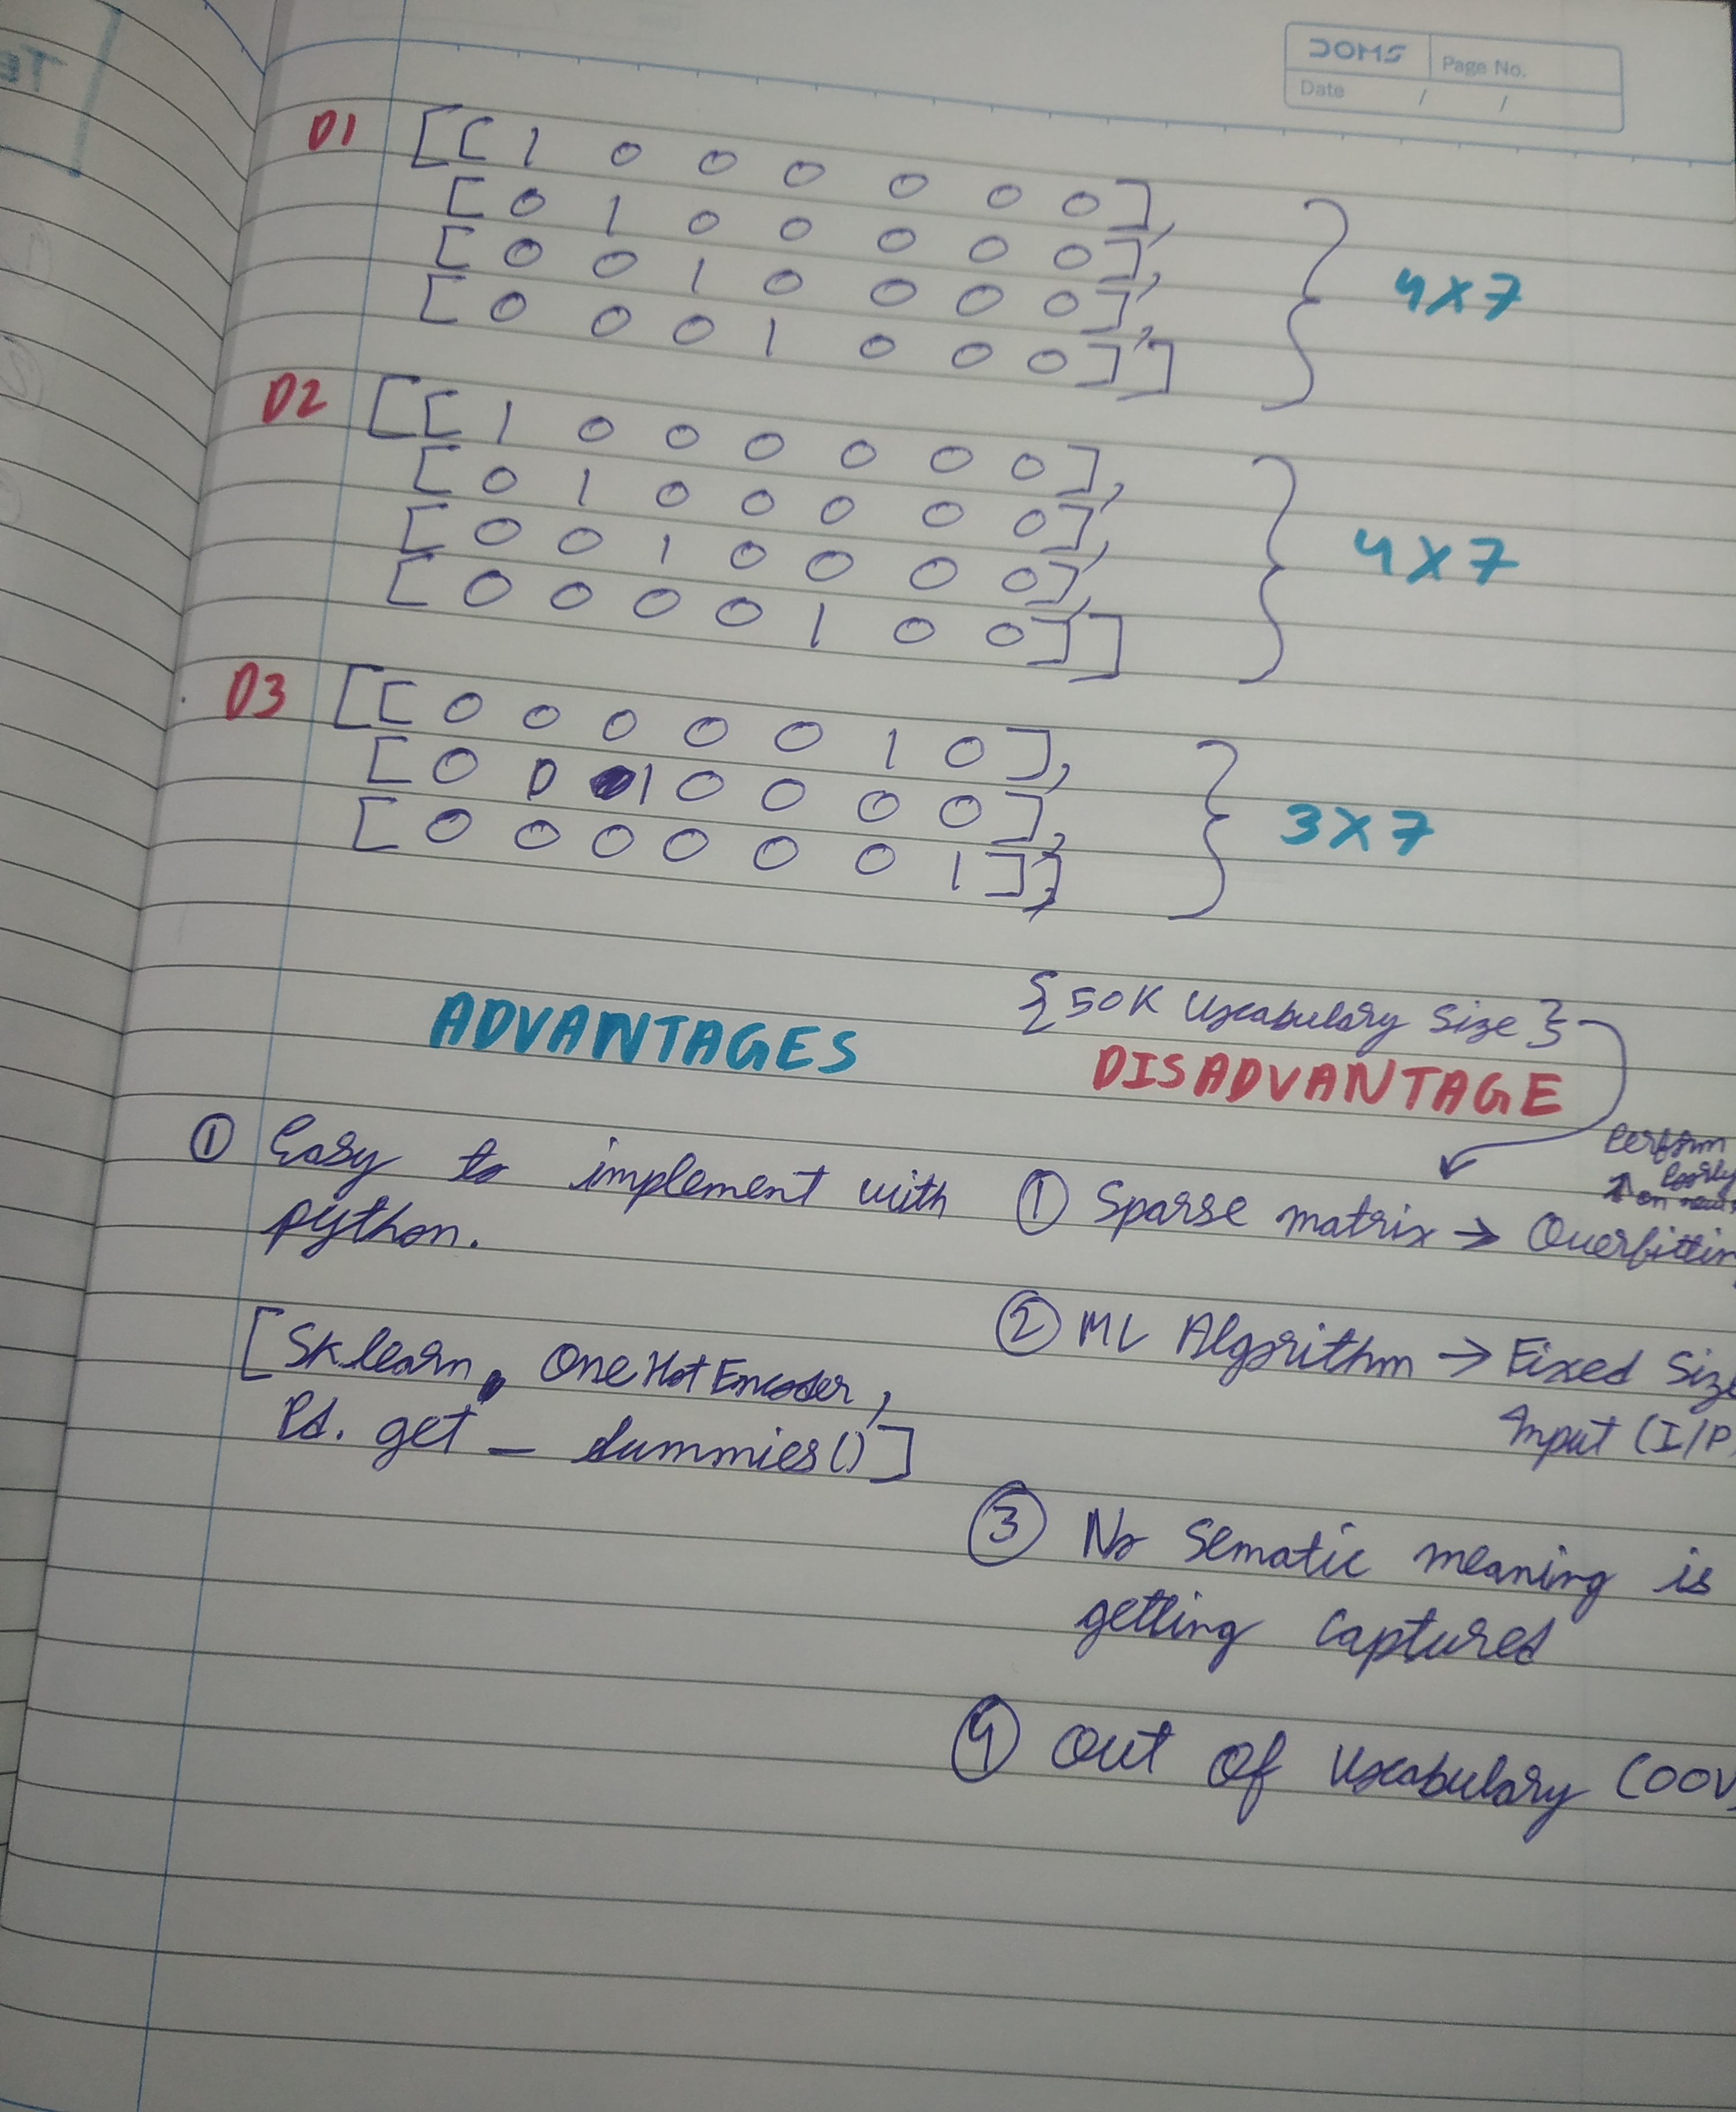 DOMS Page No.
Date / /
D1 [[ 1 0 0 0 0 0 0 ],
[ 0 1 0 0 0 0 0 ],
[ 0 0 1 0 0 0 0 ],
[ 0 0 0 1 0 0 0 ]]
4x7
D2 [[ 1 0 0 0 0 0 0 ],
[ 0 1 0 0 0 0 0 ],
[ 0 0 1 0 0 0 0 ],
[ 0 0 0 0 1 0 0 ]]
4x7
D3 [[ 0 0 0 0 0 1 0 ],
[ 0 0 1 0 0 0 0 ],
[ 0 0 0 0 0 0 1 ]]
3x7
{50K Vocabulary Size}
ADVANTAGES
① Easy to implement with
python.
[Sklearn. OneHotEncoder,
Pd. get _ dummies()]
DISADVANTAGE
Perform
Poorly
on
① Sparse matrix → Overfittin
② ML Algorithm → Fixed Size
Input (I/P)
③ No Sematic meaning is
getting Captured
④ Out Of Vocabulary (OOV)